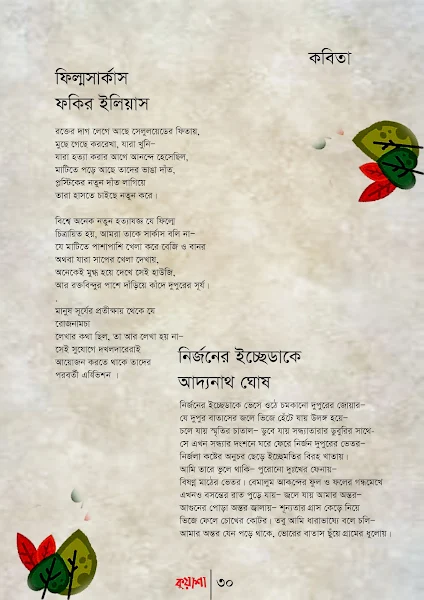 কবিতা
ফিল্মসার্কাস
ফকির ইলিয়াস
রক্তের দাগ লেগে আছে সেলুলয়েডের ফিতায়,
মুছে গেছে কররেখা, যারা খুনি–
যারা হত্যা করার আগে আনন্দে হেসেছিল,
মাটিতে পড়ে আছে তাদের ভাঙা দাঁত,
প্লাস্টিকের নতুন দাঁত লাগিয়ে
তারা হাসতে চাইছে নতুন করে।
বিশ্বে অনেক নতুন হত্যাযজ্ঞ যে ফিল্মে
চিত্রায়িত হয়, আমরা তাকে সার্কাস বলি না–
যে মাটিতে পাশাপাশি খেলা করে বেজি ও বানর
অথবা যারা সাপের খেলা দেখায়,
অনেকেই মুগ্ধ হয়ে দেখে সেই হাউজি,
আর রক্তবিন্দুর পাশে দাঁড়িয়ে কাঁদে দুপুরের সূর্য।
.
মানুষ সূর্যের প্রতীক্ষায় থেকে যে
রোজনামচা
লেখার কথা ছিল, তা আর লেখা হয় না–
সেই সুযোগে দখলদারেরাই
আয়োজন করতে থাকে তাদের
পরবর্তী এক্সিবিশন ।
নির্জনের ইচ্ছেডাকে
আদ্যনাথ ঘোষ
নির্জনের ইচ্ছেডাকে ভেসে ওঠে চমকানো দুপুরের জোয়ার–
যে দুপুর বাতাসের জলে ভিজে হেঁটে যায় উলঙ্গ হয়ে–
চলে যায় স্মৃতির চাতাল– ডুবে যায় সন্ধ্যাতারার ডুবুরির সাথে–
সে এখন সন্ধ্যার দংশনে ঘরে ফেরে নির্জন দুপুরের ভেতর–
নির্জলা কষ্টের অনুচর ছেড়ে ইচ্ছেমতির বিরহ খাতায়।
আমি তারে ভুলে থাকি– পুরোনো দুঃখের ফেনায়–
বিষণ্ন মাঠের ভেতর। বেমালুম আকন্দের ফুল ও ফলের গন্ধমেখে
এখনও বসন্তের রাত পুড়ে যায়– জলে যায় আমার অন্তর–
আগুনের পোড়া অন্তর জ্বালায়– শূন্যতার গ্রাস কেড়ে নিয়ে
ভিজে ফেলে চোখের কোটর। তবু আমি ধারাভাষ্যে বলে চলি–
আমার অন্তর যেন পড়ে থাকে, ভোরের বাতাস ছুঁয়ে গ্রামের ধুলোয়।
কুয়াশা ৩০